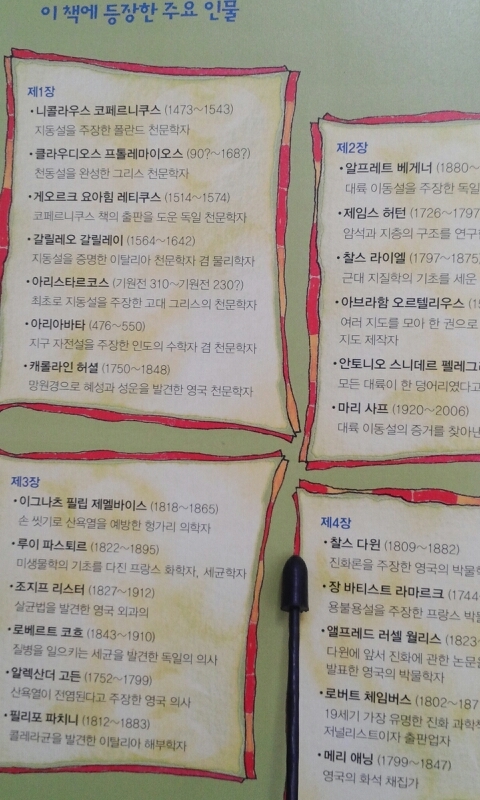 이 책에 등장한 주요 인물
제1장
·니콜라우스 코페르니쿠스 (1473~1543)
지동설을 주장한 폴란드 천문학자
·클라우디오스 프톨레마이오스 (90?~168?)
천동설을 완성한 그리스 천문학자
·게오르크 요아힘 레티쿠스 (1514~1574)
코페르니쿠스 책의 출판을 도운 독일 천문학자
·갈릴레오 갈릴레이 (1564~1642)
지동설을 증명한 이탈리아 천문학자 겸 물리학자
·아리스타르코스 (기원전 310~기원전 230?)
최초로 지동설을 주장한 고대 그리스의 천문학자
·아리아바타 (476~550)
지구 자전설을 주장한 인도의 수학자 겸 천문학자
·캐롤라인 허셜 (1750~1848)
망원경으로 혜성과 성운을 발견한 영국 천문학자
제2장
·알프레트 베게너 (1880~
대륙 이동설을 주장한 독일
·제임스 허턴 (1726~1797
암석과 지층의 구조를 연구한
·찰스 라이엘 (1797~1875
근대 지질학의 기초를 세운
·아브라함 오르텔리우스 (15
여러 지도를 모아 한 권으로
지도 제작자
·안토니오 스니데르 펠레그리
모든 대륙이 한 덩어리였다고
·마리 사프 (1920~2006)
대륙 이동설의 증거를 찾아낸
제3장
·이그나츠 필립 제멜바이스 (1818~1865)
손 씻기로 산욕열을 예방한 헝가리 의학자
·루이 파스퇴르 (1822~1895)
미생물학의 기초를 다진 프랑스 화학자, 세균학자
·조지프 리스터 (1827~1912)
살균법을 발견한 영국 외과의
·로베르트 코흐 (1843~1910)
질병을 일으키는 세균을 발견한 독일의 의사
·알렉산더 고든 (1752~1799)
산욕열이 전염된다고 주장한 영국 의사
·필리포 파치니 (1812~1883)
콜레라균을 발견한 이탈리아 해부학자
제4장
·찰스 다윈 (1809~1882)
진화론을 주장한 영국의 박물학
·장 바티스트 라마르크 (1744
용불용설을 주장한 프랑스 박물
·앨프레드 러셀 월리스 (1823~
다윈에 앞서 진화에 관한 논문을
발표한 영국의 박물학자
·로버트 체임버스 (1802~187
19세기 가장 유명한 진화 과학책
저널리스트이자 출판업자
·메리 애닝 (1799~1847)
영국의 화석 채집가